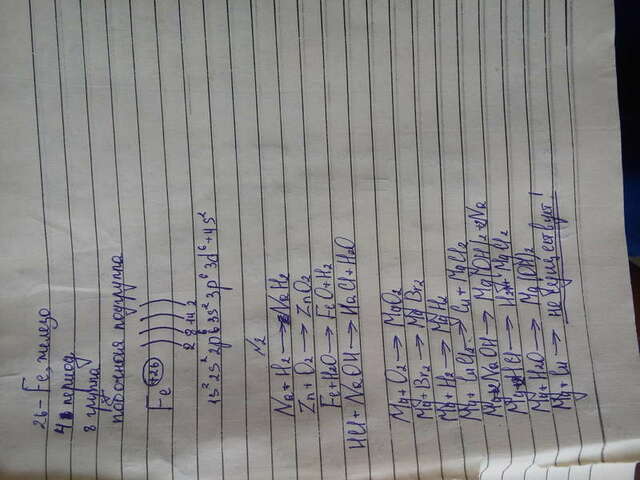 26 - Fe, железо
4 период
8 группа
побочная подгруппа
Fe +26 ) ) ) )
2 8 14 2
1s² 2s² 2p⁶ 3s² 3p⁶ 3d⁶ + 4s²
№2
Na + H2 → NaH2
Zn + O2 → ZnO2
Fe + H2O → FeO + H2
HCl + NaOH → NaCl + H2O
Mg + O2 → MgO2
Mg + Br2 → MgBr2
Mg + H2 → MgH2
Mg + CuCl2 → Cu + MgCl2
Mg + NaOH → Mg(OH)2 + Na
Mg + HCl → H2 + MgCl2
Mg + H2O → Mg(OH)2
Mg + Cu → не существует!